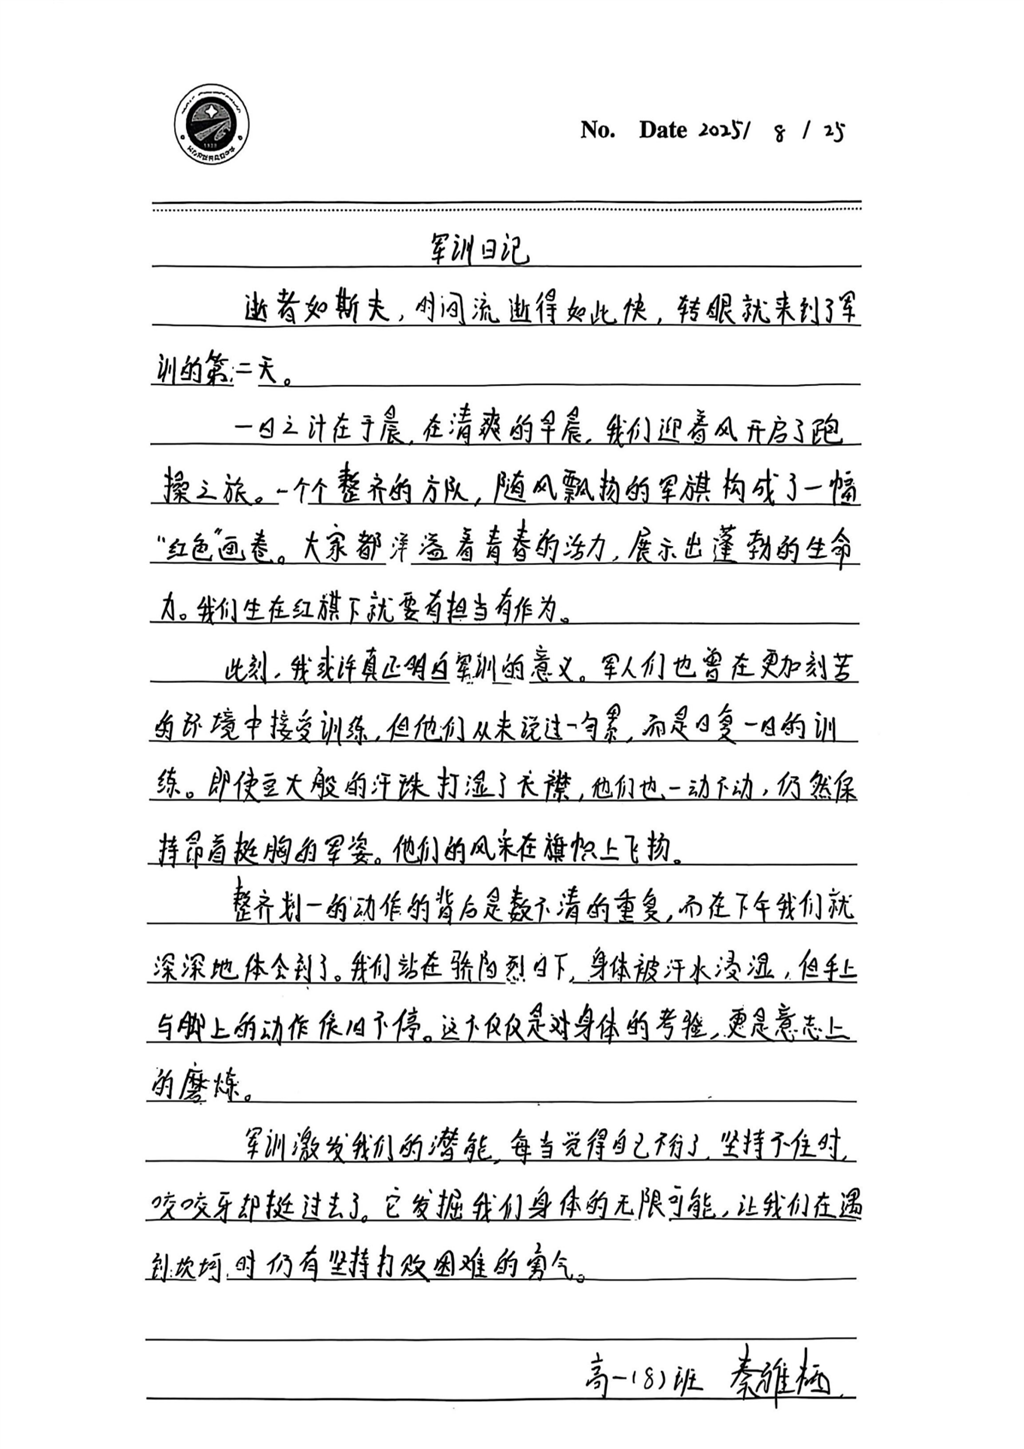 No. Date 2025/ 8 / 25
军训日记
逝者如斯夫，时间流逝得如此快，转眼就来到了军
训的第二天。
一日之计在于晨，在清爽的早晨，我们迎着风开启了跑
操之旅。一个个整齐的方队，随风飘扬的军旗构成了一幅
“红色”画卷。大家都洋溢着青春的活力，展示出蓬勃的生命
力。我们生在红旗下就要有担当有作为。
此刻，我或许真正明白军训的意义。军人们也曾在更加刻苦
的环境中接受训练，但他们从来说过一句累，而是日复一日的训
练。即使豆大般的汗珠打湿了衣襟，他们也一动不动，仍然保
持昂首挺胸的军姿。他们的风采在旗帜上飞扬。
整齐划一的动作的背后是数不清的重复，而在下午我们就
深深地体会到了。我们站在骄阳烈日下，身体被汗水浸湿，但手上
与脚上的动作依旧不停。这不仅仅是对身体的考验，更是意志上
的磨炼。
军训激发我们的潜能，每当觉得自己不行了，坚持不住时，
咬咬牙却挺过去了。它发掘我们身体的无限可能，让我们在遇
到坎坷时仍有坚持打败困难的勇气。
高一（8）班 秦雅